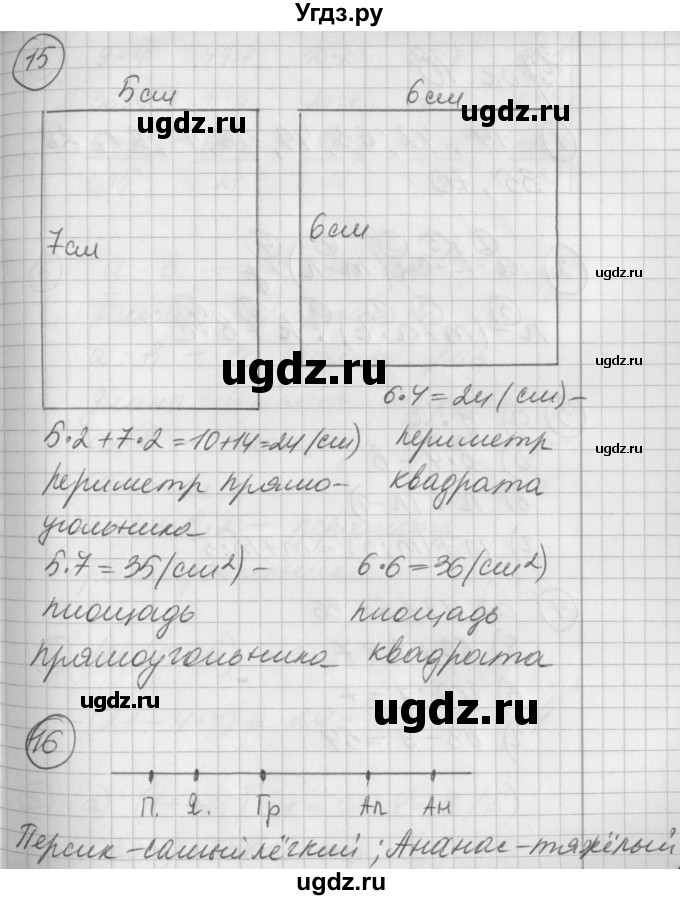 Угдз.ру
15
5см
6см
ugdz.ru
ugdz.ru
7см
6см
ugdz.ru
ugdz.ru
6·4=24(см)-
5·2+7·2=10+14=24(см)
периметр
ugdz.ru
периметр прямо-
квадрата
угольника
5·7=35(см²)-
6·6=36(см²)
площадь
площадь
ugdz.ru
прямоугольника
квадрата
ugdz.ru
ugdz.ru
16
П. Я. Гр Ап Ан
ugdz.ru
Персик-самый лёгкий; Ананас-тяжёлый
ugdz.ru